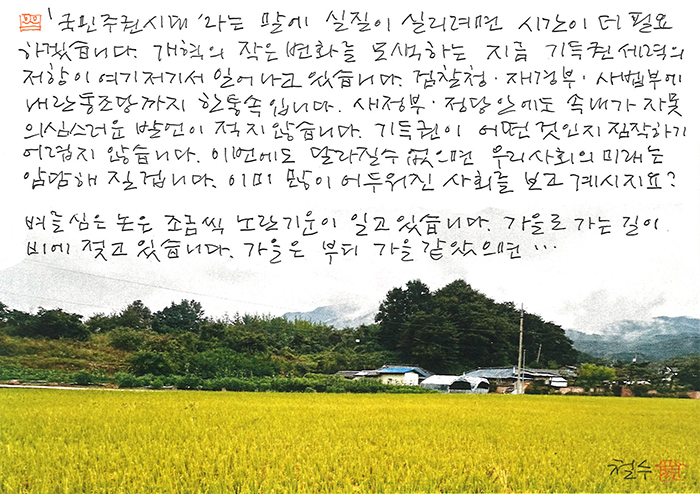 '국민주권시대'라는 말에 실질이 실리려면 시간이 더 필요
하겠습니다. 개혁의 작은 변화를 모색하는 지금 기득권 세력의
저항이 여기저기서 일어나고 있습니다. 검찰청·재경부·사법부에
내란동조당까지 한통속입니다. 새정부·정당 안에도 속내가 자못
의심스러운 발언이 적지 않습니다. 기득권이 어떤 것인지 짐작하기
어렵지 않습니다. 이번에도 달라질 수 없으면 우리사회의 미래는
암담해 질 겁니다. 이미 많이 어두워진 사회를 보고 계시지요?
벼를 심은 논은 조금씩 노란기운이 일고 있습니다. 가을로 가는 길이
비에 젖고 있습니다. 가을은 부디 가을 같았으면 …
철수